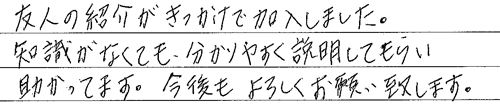 友人の紹介がきっかけで加入しました。
知識がなくても、分かりやすく説明してもらい
助かってます。今後もよろしくお願い致します。